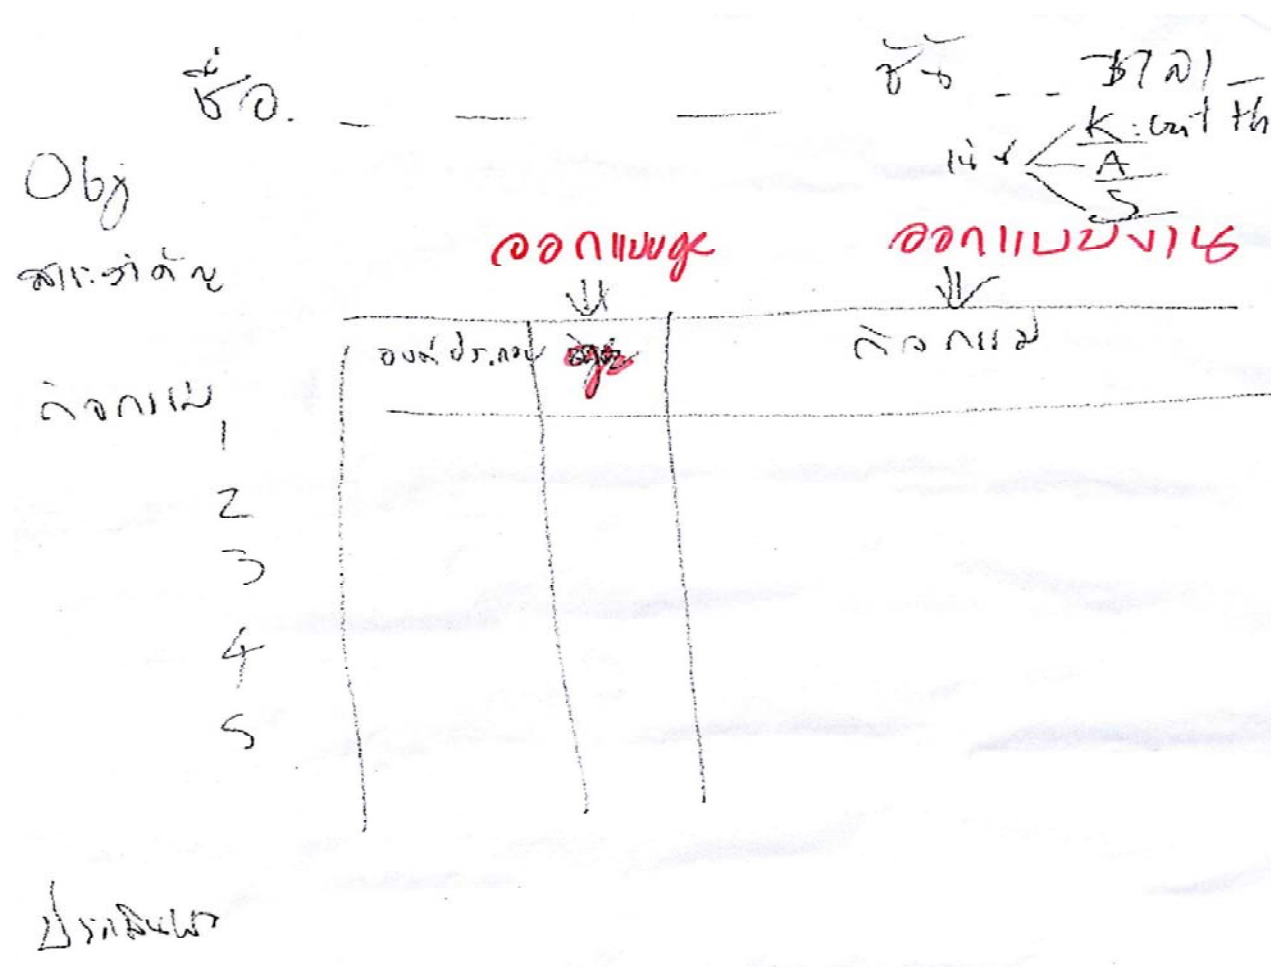 ชื่อ. _ _ _ ชั้น _ _ เวลา _
เน้น K:
A
S
Obj
สาระสำคัญ
ออกแบบ ออกแบบงาน
องค์ประกอบ กิจกรรม
กิจกรรม
1
2
3
4
5
ประเมินผล